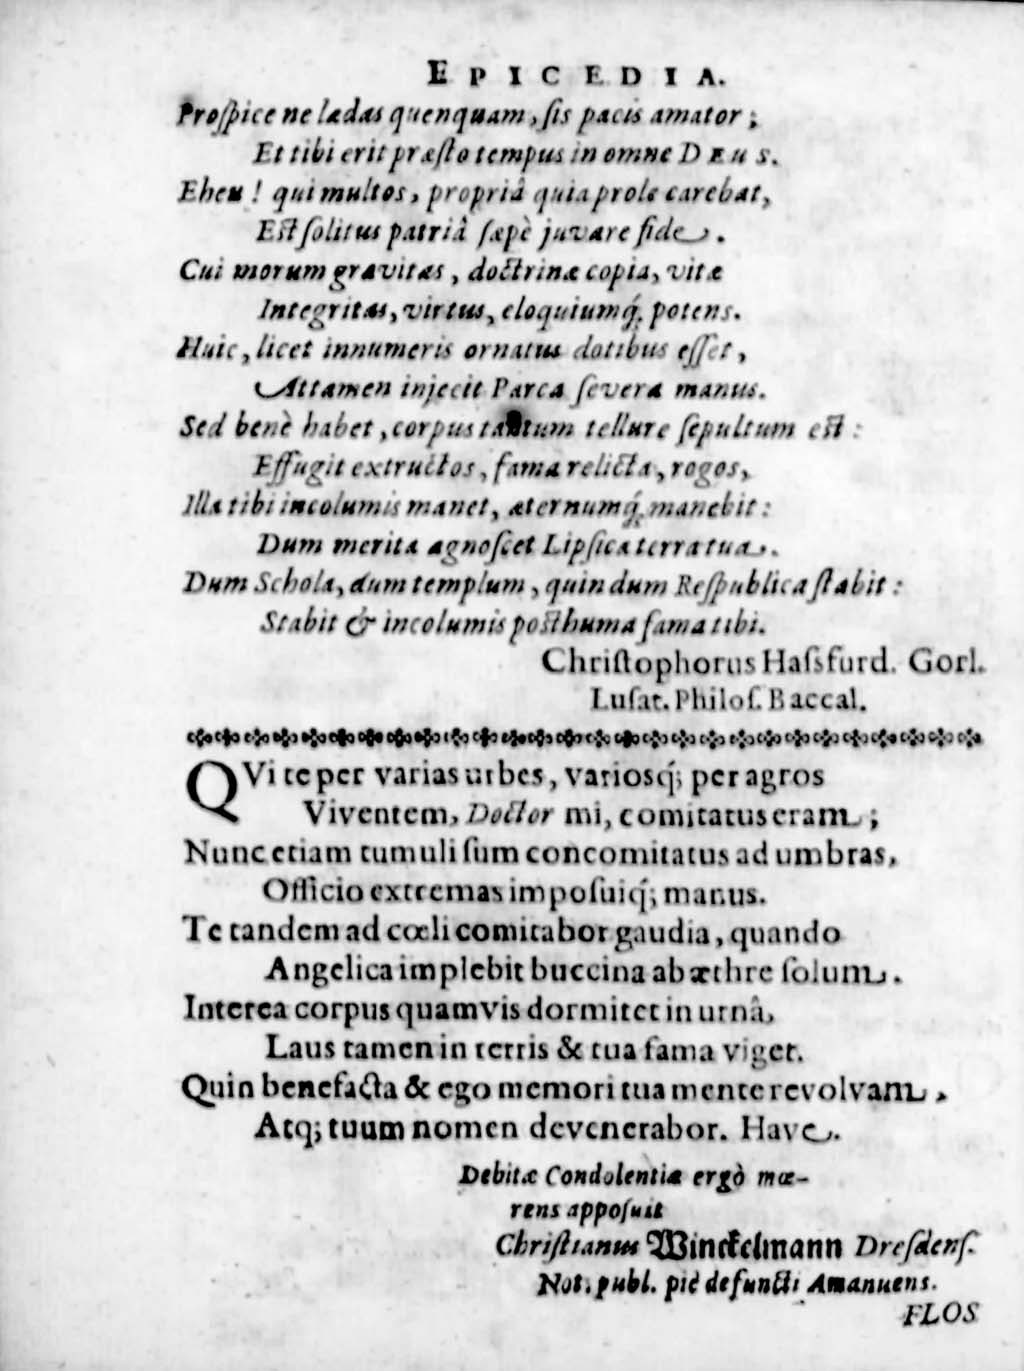 EPICEDIA.
Proſpice ne lædas quenquam, ſis pacis amator;
Et tibi erit præſto tempus in omne DEUS.
Eheu! qui multos, propriâ quia prole carebat,
Eſt ſolitus patriâ ſæpè juvare fide.
Cui morum gravitas, doctrinæ copia, vitæ
Integritas, virtus, eloquiumq́; potens.
Huic, licet innumeris ornatus dotibus eſſet,
Attamen injecit Parca ſevera manus.
Sed benè habet, corpus tantum tellure ſepultum eſt:
Effugit extructos, fama relicta, rogos,
Illa tibi incolumis manet, æternumq́; manebit:
Dum merita agnoſcet Lipſica terra tua.
Dum Schola, dum templum, quin dum Reſpublica ſtabit:
Stabit & incolumis poſthuma fama tibi.
Chriſtophorus Haſsfurd. Gorl.
Luſat. Philoſ. Baccal.
QVi te per varias urbes, variosq́; per agros
Viventem, Doctor mi, comitatus eram;
Nunc etiam tumuli ſum concomitatus ad umbras,
Officio extremas impoſuiq́; manus.
Te tandem ad cœli comitabor gaudia, quando
Angelica implebit buccina ab æthre ſolum.
Interea corpus quamvis dormitet in urnâ,
Laus tamen in terris & tua fama viget.
Quin benefacta & ego memori tua mente revolvam,
Atq; tuum nomen devenerabor. Have.
Debitæ Condolentiæ ergò mœ-
rens appoſuit
Chriſtianus Winckelmann Dreſdenſ.
Not. publ. piè defuncti Amanuens.
FLOS